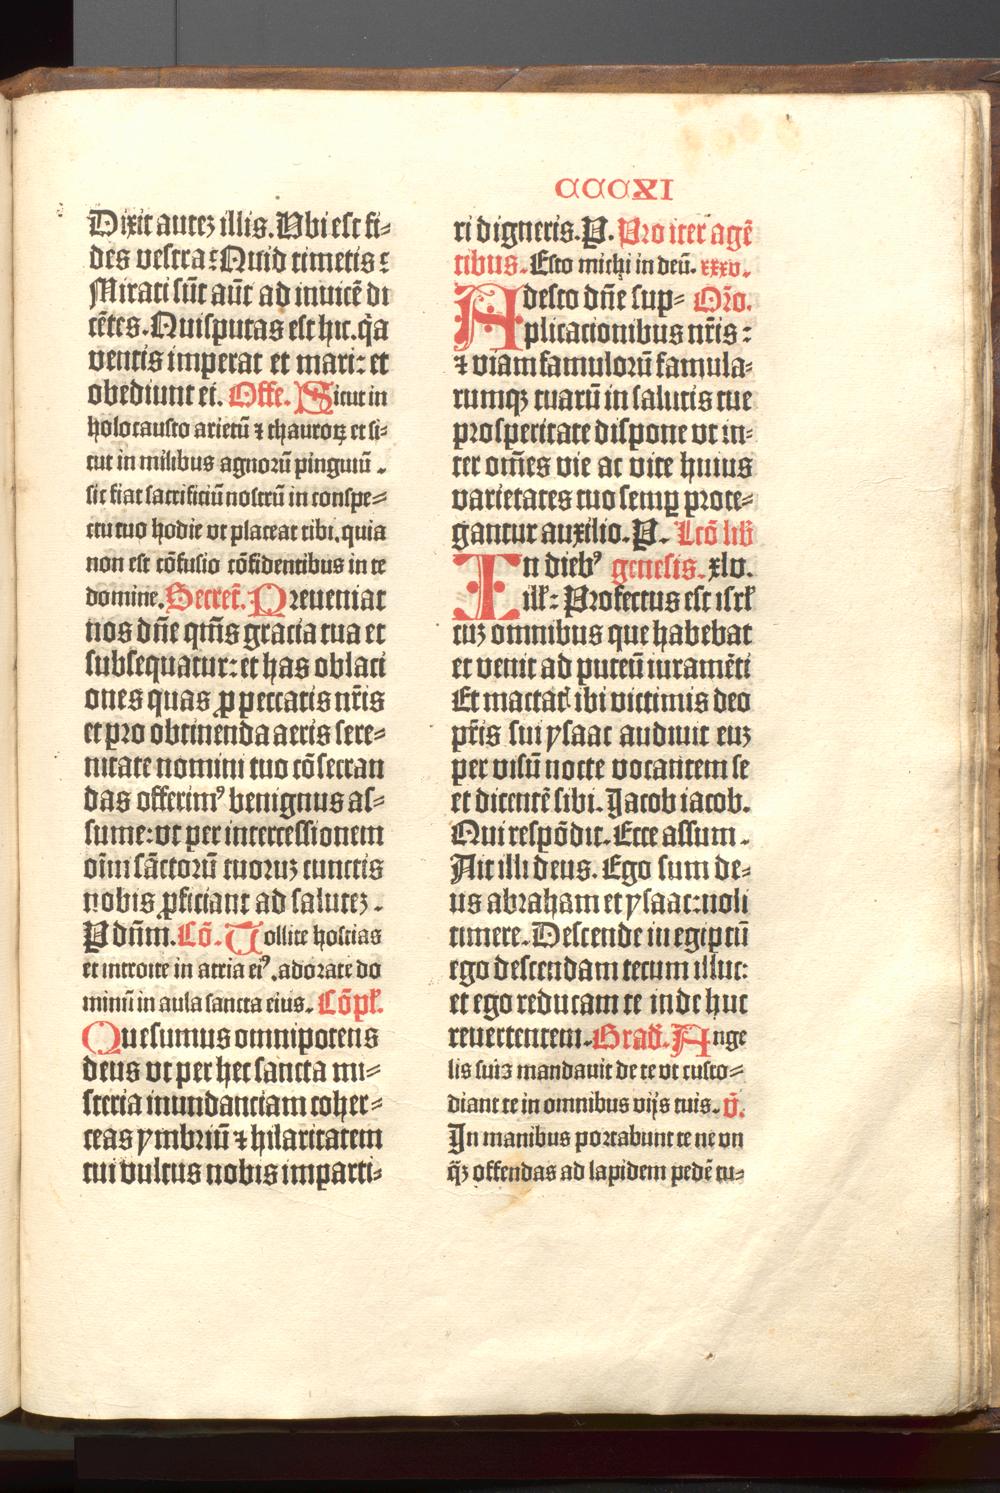 CCCXI
Dixit autez illis. Vbi est fi⸗
des vestra: Quid timetis:
Mirati sūt aūt ad inuicē di
cētes. Quis putas est hic. q̇a
ventis imperat et mari: et
obediunt ei. Offe. Sicut in
holocausto arietū ⁊ thauroꝝ et si⸗
cut in milibus agnorū pinguiū.
sic fiat sacrificiū nostrū in conspe⸗
ctu tuo hodie vt placeat tibi. quia
non est cōfusio cōfidentibus in te
domine. Secret̄. Preueniat
nos dn̄e qm̄s gracia tua et
subsequatur: et has oblaci
ones quas ꝓ peccatis nr̄is
et pro obtinenda aeris sere⸗
nitate nomini tuo cōsecran
das offerimꝰ benignus as⸗
sume: vt per intercessionem
oīm sāctorū tuoruz cunctis
nobis ꝓficiant ad salutez.
P dn̄m. Cō. Tollite hostias
et introite in atria eiꝰ. adorate do
minū in aula sancta eius. Cōpl̄.
Quesumus omnipotens
deus vt per hec sancta mi⸗
steria inundanciam coher⸗
ceas ymbriū ⁊ hilaritatem
tui vultus nobis imparti⸗
ri digneris. P. Pro iter agē
tibus. Esto michi in deū. xxxv.
Adesto dn̄e sup⸗ Orō.
plicacionibus nr̄is:
⁊ viam famulorū famula⸗
rumqꝫ tuarū in salutis tue
prosperitate dispone vt in⸗
ter om̄es vie ac vite huius
varietates tuo semꝑ prote⸗
gantur auxilio. P. Lcō lib̄
In diebꝰ genesis. xlv.
ill̄: Profectus est isrl̄
cuz omnibus que habebat
et venit ad puteū iuramēti
Et mactat̄ ibi victimis deo
pr̄is sui ysaac audiuit euz
per visū nocte vocantem se
et dicentē sibi. Jacob iacob.
Qui respōdit. Ecce assum.
Ait illi deus. Ego sum de⸗
us abraham et ysaac: noli
timere. Descende in egiptū
ego descendam tecum illuc:
et ego reducam te inde huc
reuertentem. Grad̄. Ange
lis suis mandauit de te vt custo⸗
diant te in omnibus vijs tuis. v̄.
In manibus portabunt te ne vn
q̄ꝫ offendas ad lapidem pedē tu⸗